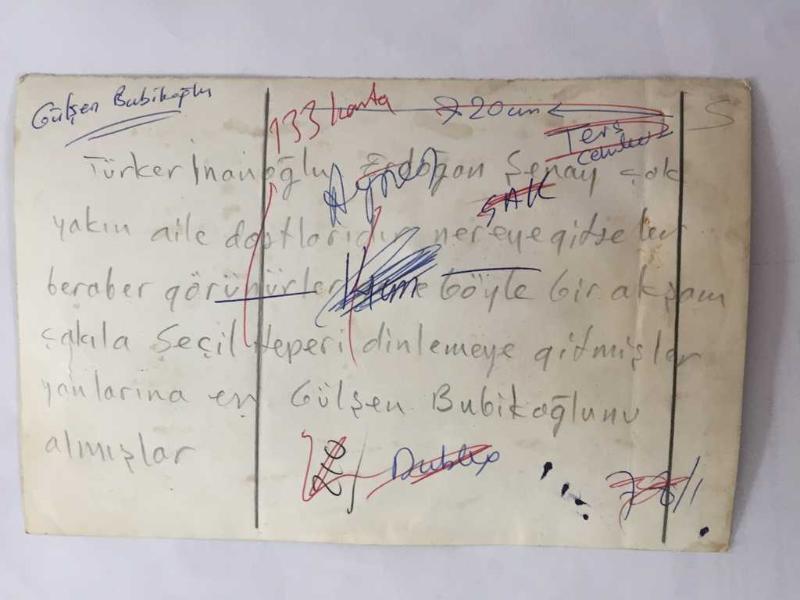 Gülşen Bubikoğlu
133 karta
20 cm
Ters
S
Türker İnanoğlu Erdoğan Şenay çok
ŞAK
yakın aile dostlarıdır nereye gitseler
beraber görünürler böyle bir akşam
çakıla Seçil Heperi dinlemeye gitmişler
yanlarına en Gülşen Bubikoğlunu
almışlar
Dublex